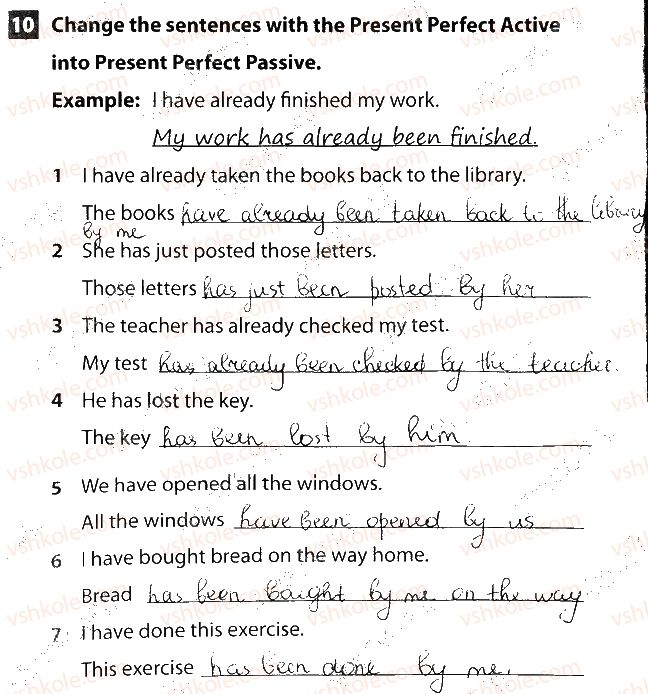 10 Change the sentences with the Present Perfect Active
into Present Perfect Passive.
Example: I have already finished my work.
My work has already been finished.
1 I have already taken the books back to the library.
The books have already been taken back to the library
by me
2 She has just posted those letters.
Those letters has just been posted by her
3 The teacher has already checked my test.
My test has already been checked by the teacher.
4 He has lost the key.
The key has been lost by him
5 We have opened all the windows.
All the windows have been opened by us
6 I have bought bread on the way home.
Bread has been baught by me on the way
7 I have done this exercise.
This exercise has been done by me.
vshkole.com